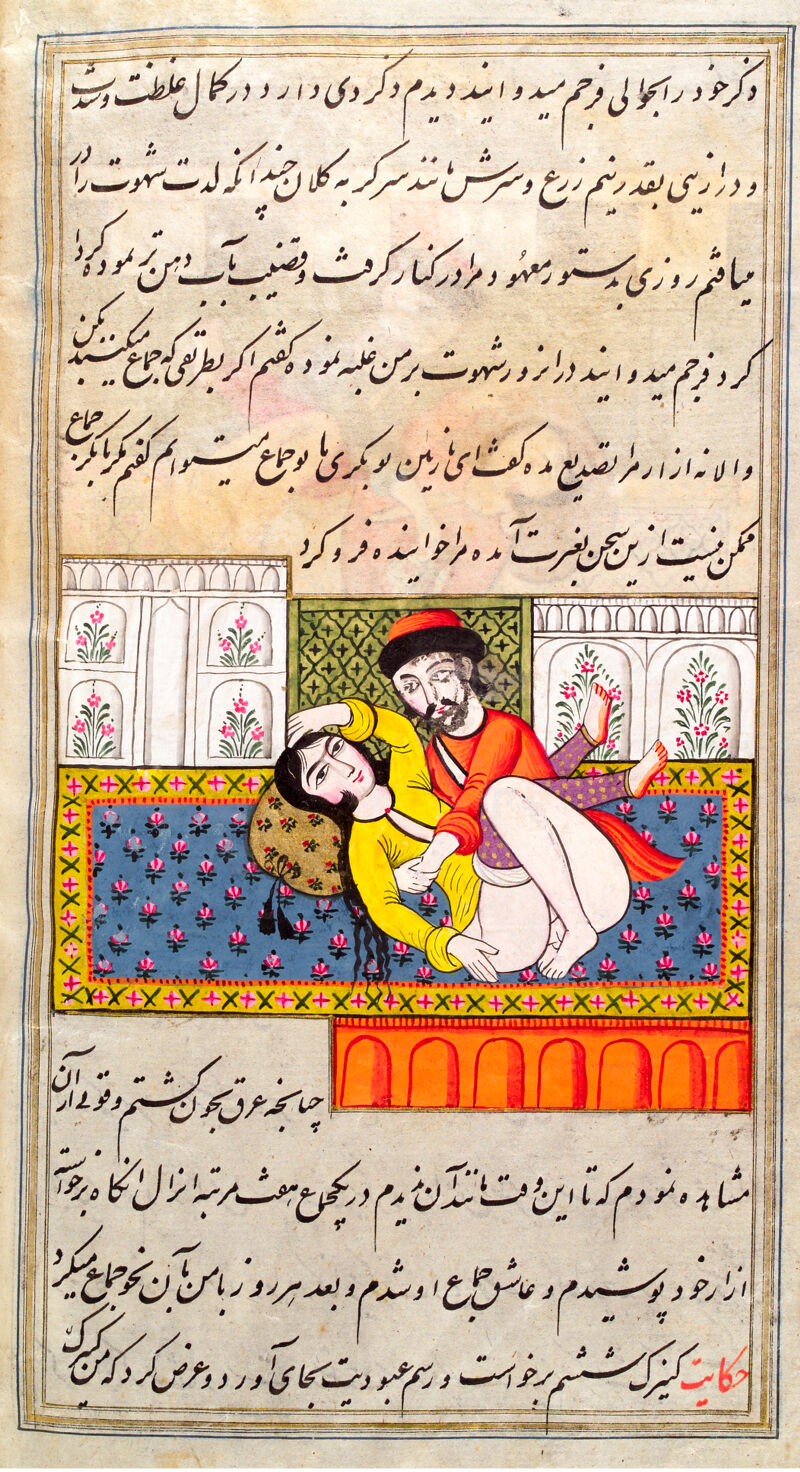 ذکر خود را بحوالی فرجم میدوانید دیدم ذکردی دارد در کمال غلظت و شدت
و درازیی بقدر نیم زرع و سرش مانند سر کر به کلان چندانکه لذت شهوت را در
میافتم روزی بدستور معهود مرا در کنار گرفت و قضیب بآب دهن تر نموده کردا
کرد فرجم میدوانید در انزور شهوت بر من غلبه نموده گفتم اگر بطریقی که جماع میکنند بکن
والا نه ازار مرا تصدیع مده گفت ای نازنین تو بکری با تو جماع نمیتوانم گفتم مگر با بکر جماع
ممکن نیست ازین سخن بغیرت آمده مرا خوابیده فرو کرد
چنانچه غرق بخون گشتم و ذوقی از آن
مشاهده نمودم که تا این وقت مانند آن ندیدم در یکجماع هفت مرتبه انزال انگاه برخواسته
ازار خود پوشیدم و عاشق جماع او شدم و بعد هر روز با من بآن نحو جماع میکرد
حکایت کنیزک ششم برخواست و رسم عبودیت بجای آورد و عرض کرد که من کنیزک